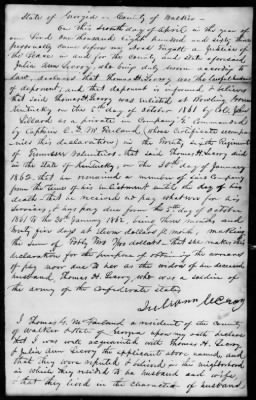 State of Georgia — County of Walker —
On this seventh day of April in the year of
our Lord one thousand eight hundred and sixty three
personally came before me a Justice
of the Peace in and for the county and state aforesaid
Julia Ann Leroy, who being duly sworn according to
law, declares that Thomas H. Leroy, was the
of deponent, and that deponent is informed & believes
that said Thomas H. Leroy was enlisted at Bowling Green
Kentucky on the 5th day of October 1861 by Col. John
Lillard as a private in Company E commanded
by Captain C. D. McFarland, (whose Certificate accompa-
nies this declaration) in the Twenty sixth Regiment
of Tennessee Volunteers, that said Thomas H. Leroy died
in the State of Kentucky on the 20th day of January
1862. that he remained a member of said Company
from the time of his inlistment until the day of his
death & that he received no pay whatever for his
services & had pay due from the 5th day of October
1861 to the 20th January 1862, being three months and
twenty five days at Eleven dollars pr month, making
the sum of Forty two dollars — that she makes this
declaration for the purpose of obtaining the arrears
of pay now due to her as the widow of her deceased
husband, Thomas H. Leroy who was a soldier of
the army of the Confederate States
Julia ann Leroy
I Thomas G. McFarland a resident of the County
of Walker & State of Georgia upon my oath declare
that I was well acquainted with Thomas H. Leroy
& Julia Ann Leroy the applicant above named, and
that they were reputed & believed in the neighborhood
in which they resided to be husband and wife,
& that they lived in the character of husband